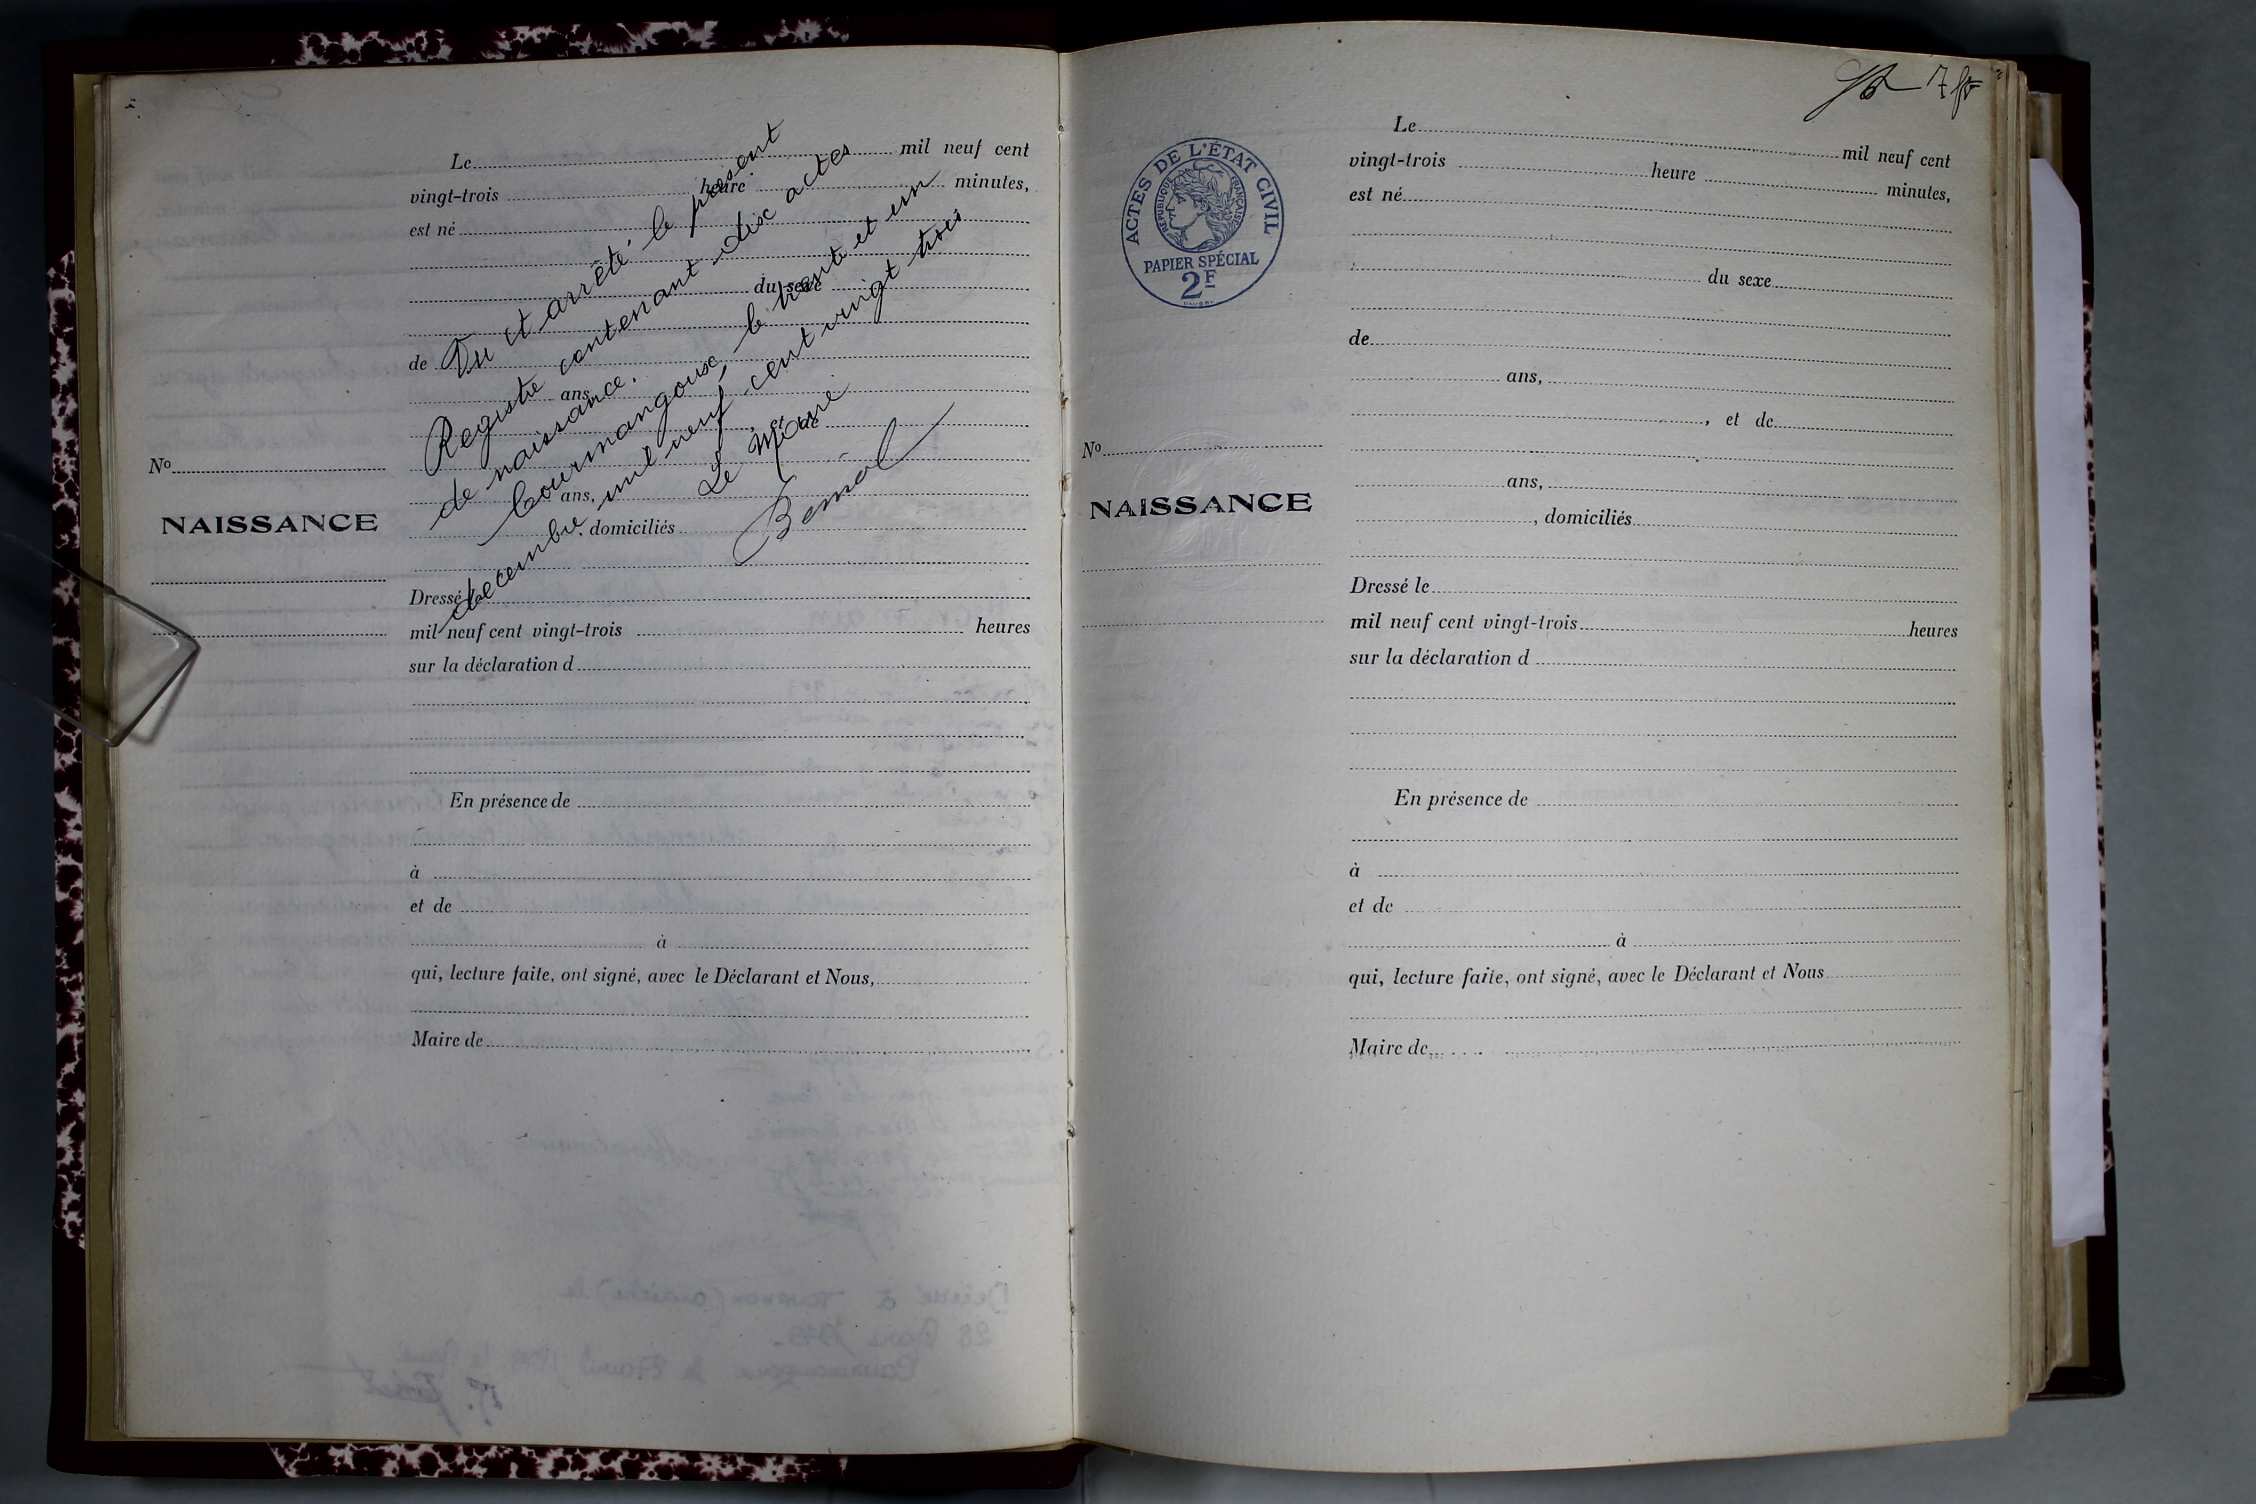 Le mil neuf cent
vingt-trois heure minutes,
est né
du sexe
de
ans,
et de
ans,
, domiciliés
Vu et arrêté le présent
Registre contenant dix actes
de naissance.
Courmangoux, le trente et un
décembre, mil neuf cent vingt trois
Le Maire
N°
NAISSANCE
Dressé le
mil neuf cent vingt-trois heures
sur la déclaration d
En présence de
à
et de
à
qui, lecture faite, ont signé, avec le Déclarant et Nous,
Maire de
7
ACTES DE L'ÉTAT CIVIL
RÉPUBLIQUE FRANÇAISE
PAPIER SPÉCIAL
2F
Le mil neuf cent
vingt-trois heure minutes,
est né
du sexe
de
ans,
, et de
ans,
, domiciliés
N°
NAISSANCE
Dressé le
mil neuf cent vingt-trois heures
sur la déclaration d
En présence de
à
et de
à
qui, lecture faite, ont signé, avec le Déclarant et Nous
Maire de